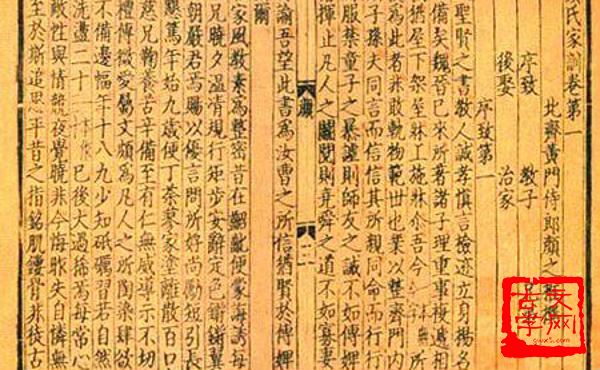 氏家訓卷第一
北齊黃門侍郎顏之
序致 教子
後娶 治家
序致第一
聖賢之書教人誠孝慎言檢迹立身揚名
備矣魏晉已來所著諸子理重事複遞相
屋下架屋牀上施牀尒吾今
為此者非敢軌物範世也業以整齊門內
子孫夫同言而信信其所親同命而行行
服禁童子之暴謔則師友之誡不如傅婢
揮止凡人之鬭鬩則堯舜之道不如寡妻
諭吾望此書為汝曹之所信猶賢於傅婢
爾
家風教素為整密昔在齠齓便蒙誨誘每
兄曉夕溫凊規行矩步安辭定色鏘鏘翼
朝嚴君焉賜以優言問所好尚勵短引長
懇篤年始九歲便丁荼蓼家塗離散百口
慈兄鞠養苦辛備至有仁無威導示不切
禮傳微愛屬文頗為凡人之所陶染肆欲
不備邊幅年十八九少知砥礪習若自然
洗盪二十已後大過稀焉每常心
敵性與情競夜覺曉非今悔昨失自憐無
至於斯追思平昔之指銘肌鏤骨非徒古